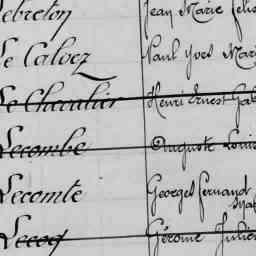 Lebreton Jean Marie Félix
Le Calvez Paul Yves Mari
Le Chevalier Henri Ernest Gab
Lecombe Auguste Louis
Lecomte Georges Fernand
Lecoq Gérome Julien